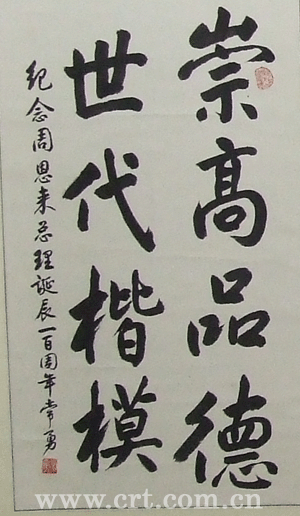 崇高品德
世代楷模
纪念周恩来总理誕辰一百周年常勇
www.crt.com.cn